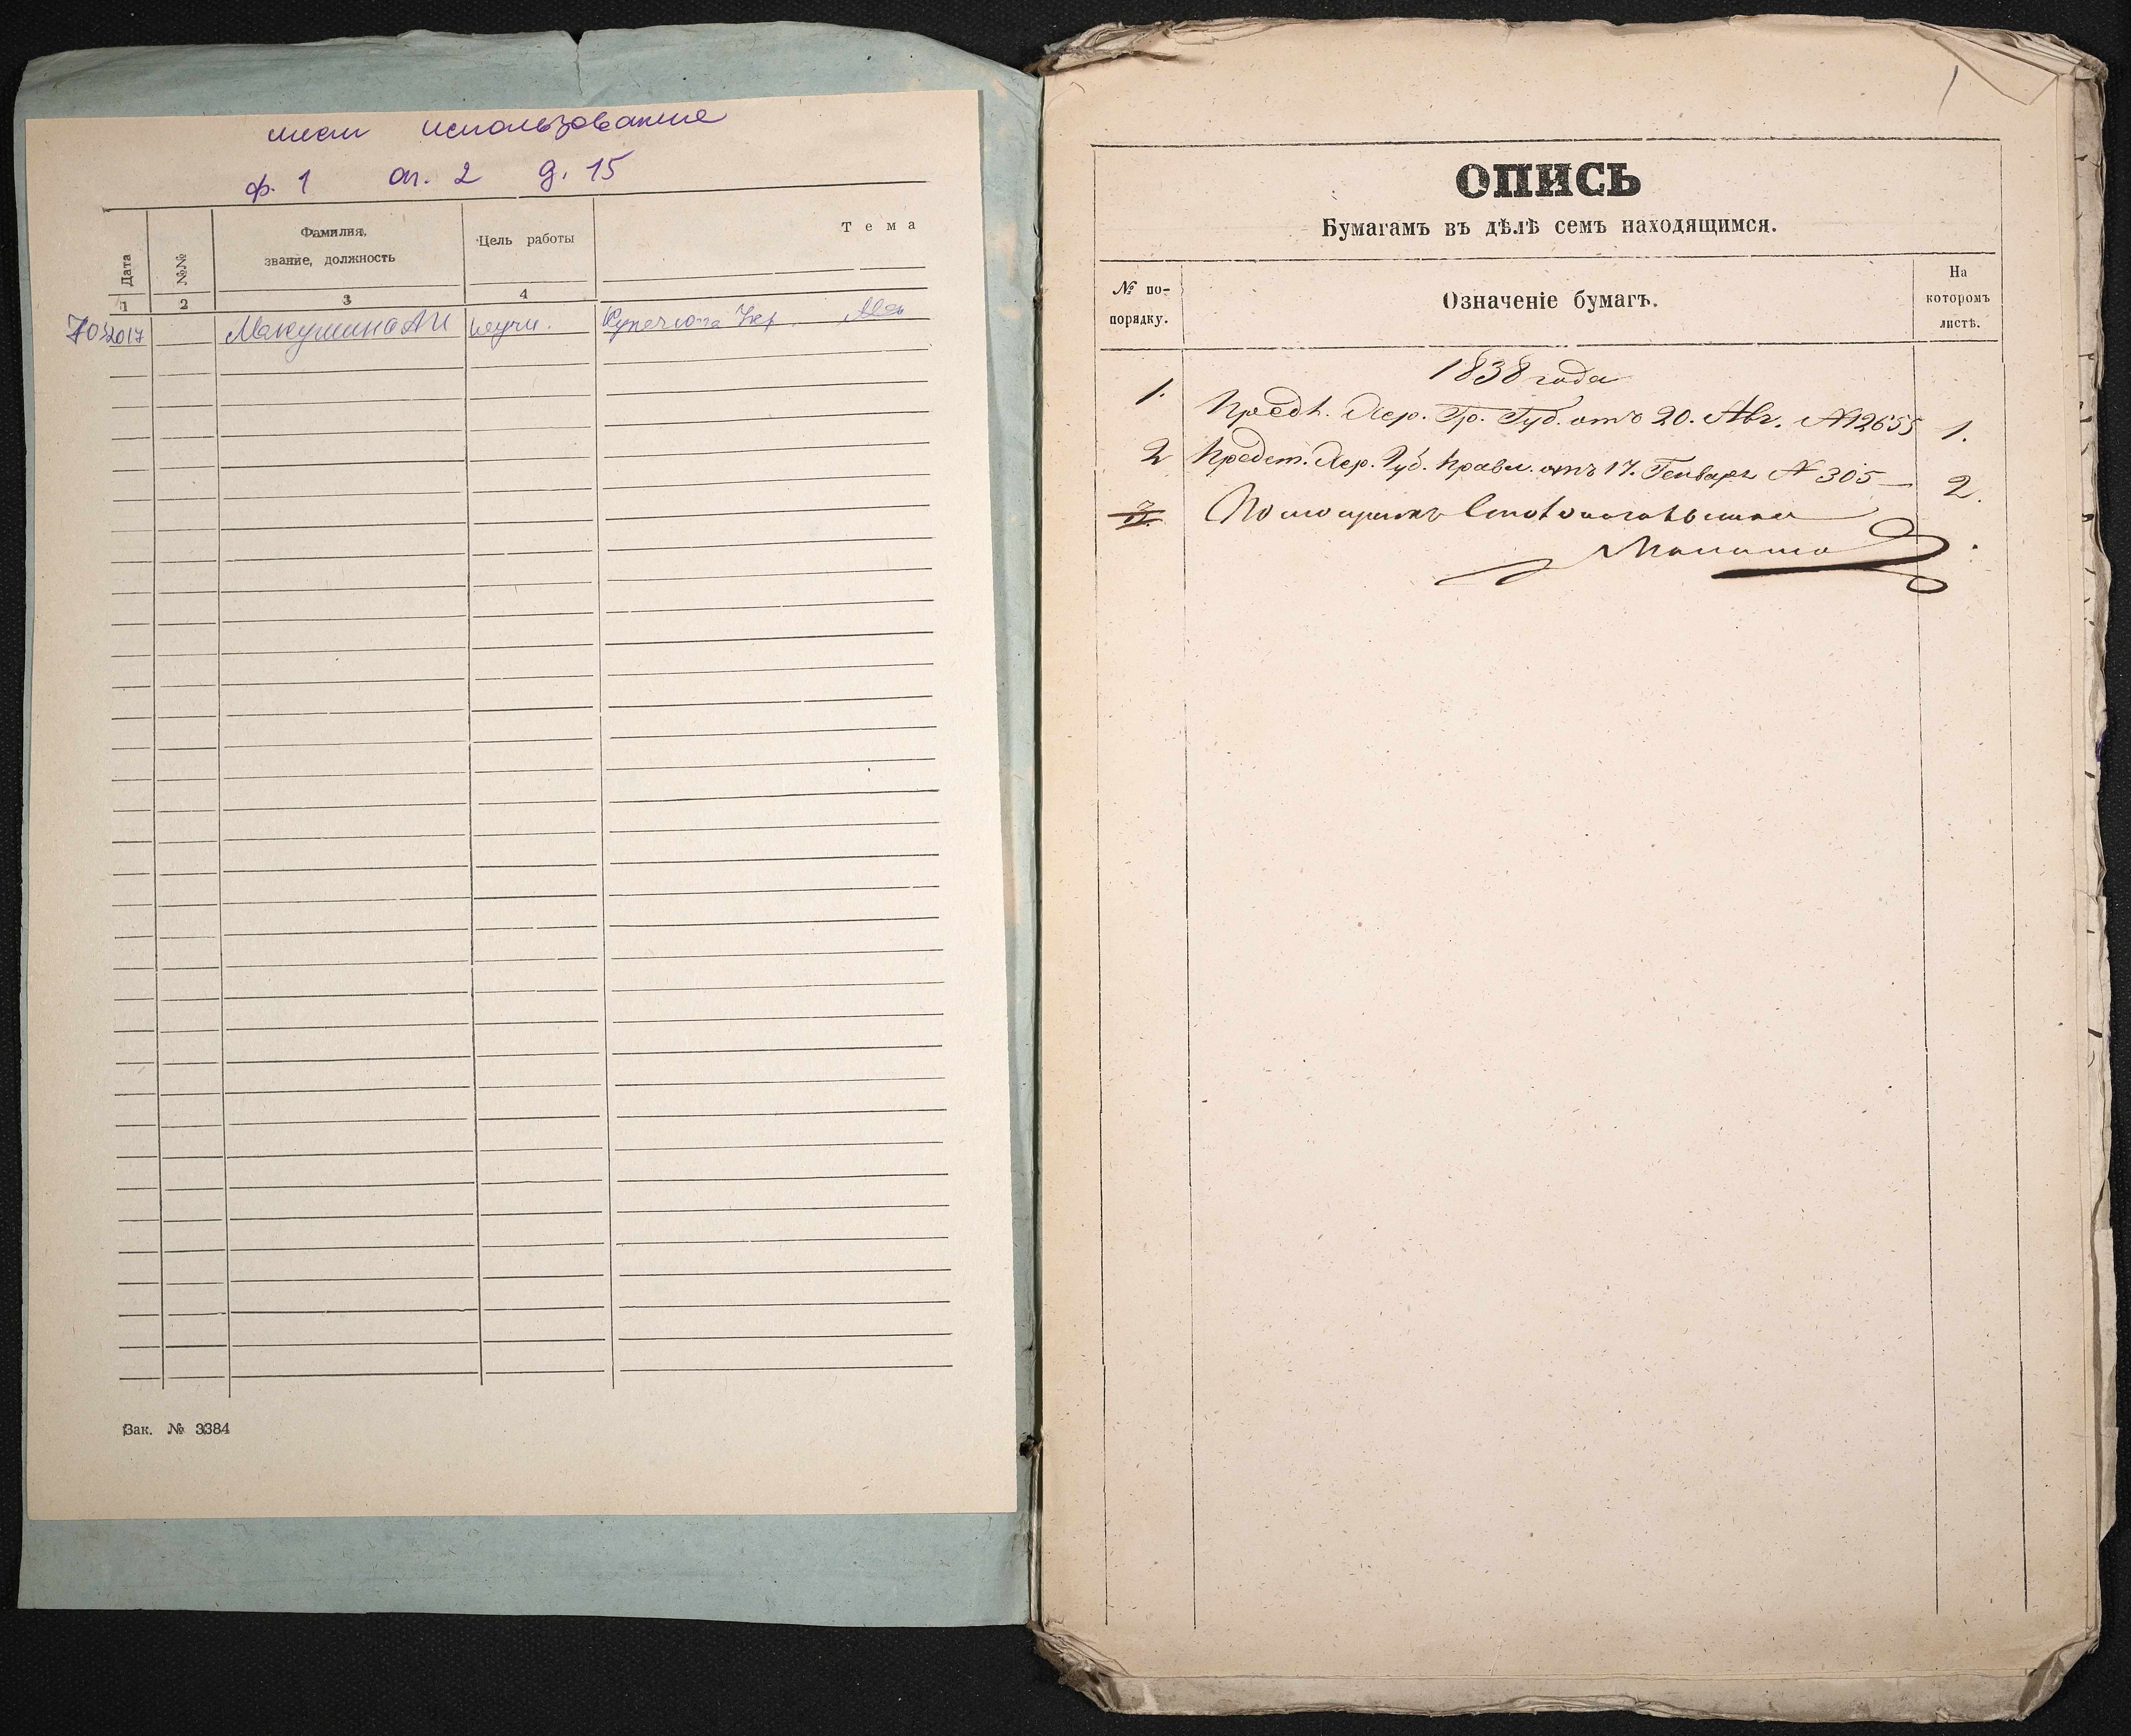 лист использования
ф. 1 оп. 2 д. 15
Дата
№№
Фамилия,
звание, должность
Цель работы
Тема
1 2 3 4
2017 Макушина АИ научн.
Зак. № 3384
1
ОПИСЬ
Бумагамъ въ дѣлѣ семъ находящимся.
№ по-
порядку.
Означеніе бумагъ.
На
которомъ
листѣ.
1838 года
1. Предл. Хер. Гр. Губ. отъ 20. Авг. №12655 1.
2 Предст. Хер. Губ. Правл. отъ 17. Генваря № 305 2.
3.